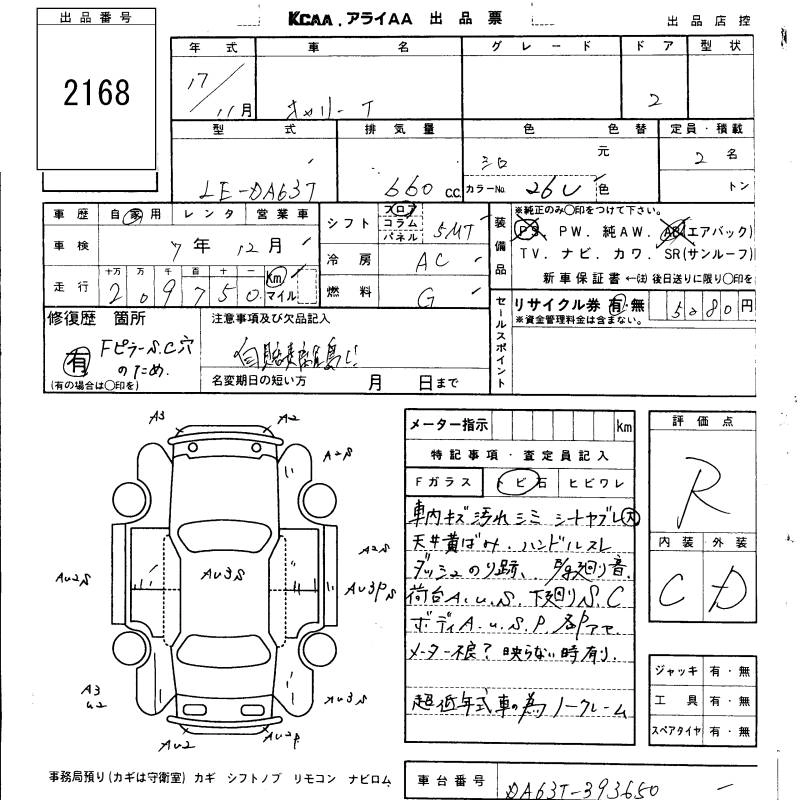 出品番号
2168
KCAA. アライAA 出品票
出品店控
年式 車名 グレード ドア 型状
17/11月 キャリーT 2
型式 排気量 色 色替 定員・積載
LE-DA63T 660 cc シロ 元 2名
カラーNo. 26U 色 トン
車歴 自家用 レンタ 営業車
車検 7年12月
走行 十万 万 千 百 十 一
209750 Km マイル
シフト フロア コラム パネル 5MT
冷房 AC
燃料 G
装備品
※純正のみ○印をつけて下さい。
PS. PW. 純AW. AB(エアバック)
TV. ナビ. カワ. SR(サンルーフ)
新車保証書 ←(注) 後日送りに限り○印を
セールスポイント
リサイクル券 有・無 5280円
※資金管理料金は含まない。
修復歴 箇所
有 Fピラー S.C穴
のため.
(有の場合は○印を)
注意事項及び欠品記入
名変期日の短い方 月 日まで
A3 A2
A2S
A2S
AU2S AU3S AU3PS
A3
U2
AU3S
AU2 AU2P
メーター指示 Km
特記事項・査定員記入
Fガラス トビ石 ヒビワレ
車内キズ 汚れ シミ シートヤブレ大
天井黄ばみ. ハンドルスレ
ダッシュのり跡. E/g廻り音.
荷台A.u.S. 下廻りS.C
ボディA.u.S.P
メーター不良? 映らない時有り.
超低年式車の為ノークレーム
評価点
R
内装 外装
C D
ジャッキ 有・無
工具 有・無
スペアタイヤ 有・無
事務局預り(カギは守衛室) カギ シフトノブ リモコン ナビロム
車台番号 DA63T-393650